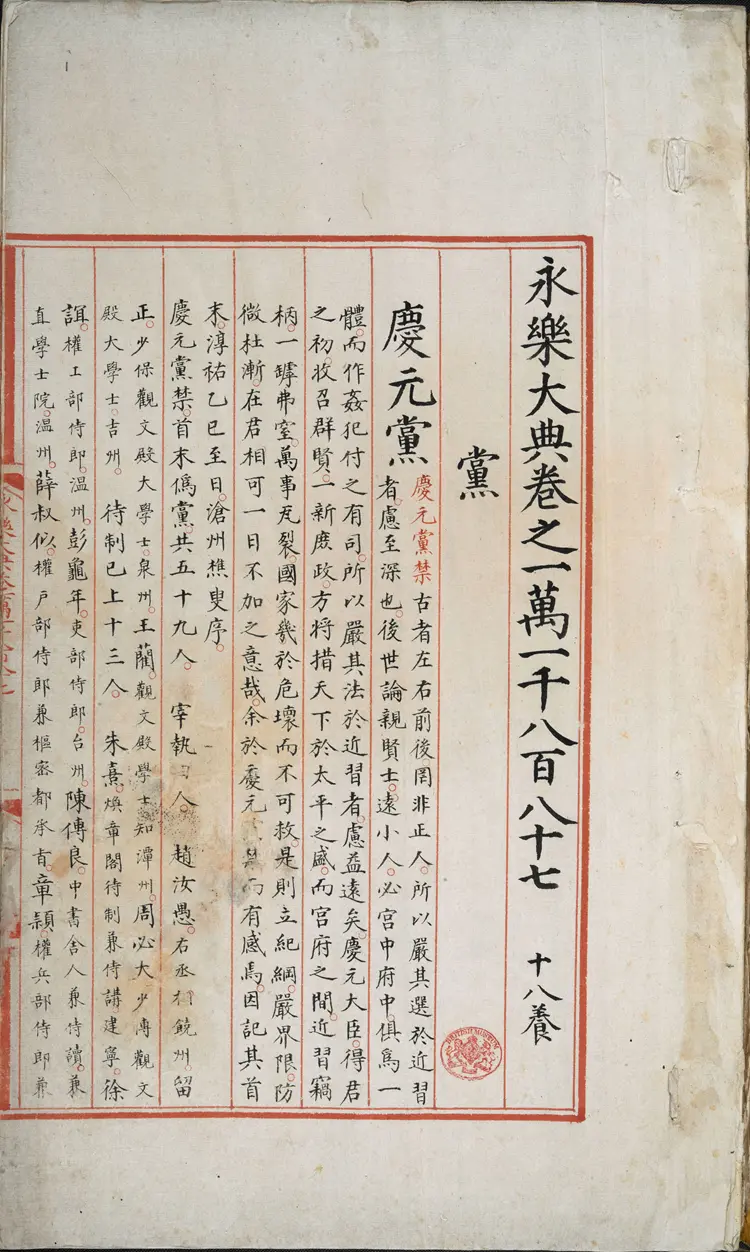 永樂大典卷之一萬一千八百八十七 十八養
黨
慶元黨
慶元黨禁古者左右前後罔非正人。所以嚴其選於近習
者。慮至深也。後世論親賢士。遠小人。必宮中府中。俱爲一
體。而作姦犯付之有司。所以嚴其法於近習者。慮益遠矣。慶元大臣。得君
之初。收召群賢。一新庶政。方將措天下於太平之盛。而宮府之間。近習竊
柄。一罅弗窒。萬事瓦裂。國家幾於危壞而不可救。是則立紀綱。嚴界限。防
微杜漸。在君相可一日不加之意哉。余於慶元禁而有感焉。因記其首
末。淳祐乙巳至日。滄州樵叟序。
慶元黨禁。首末僞黨。共五十九人。 宰執人。 趙汝愚。右丞相饒州。留
正。少保觀文殿大學士。泉州。王藺。觀文殿學士知潭州。周必大。少傅觀文
殿大學士。吉州。 待制已上十三人。 朱熹。煥章閣待制兼侍講建寧。徐
誼。權工部侍郎。溫州。彭龜年。吏部侍郎。台州。陳傅良。中書舍人兼侍讀。兼
直學士院。溫州。薛叔似。權戶部侍郎兼樞密都承旨。章頴。權兵部侍郎兼
BRITISH MUSEUM